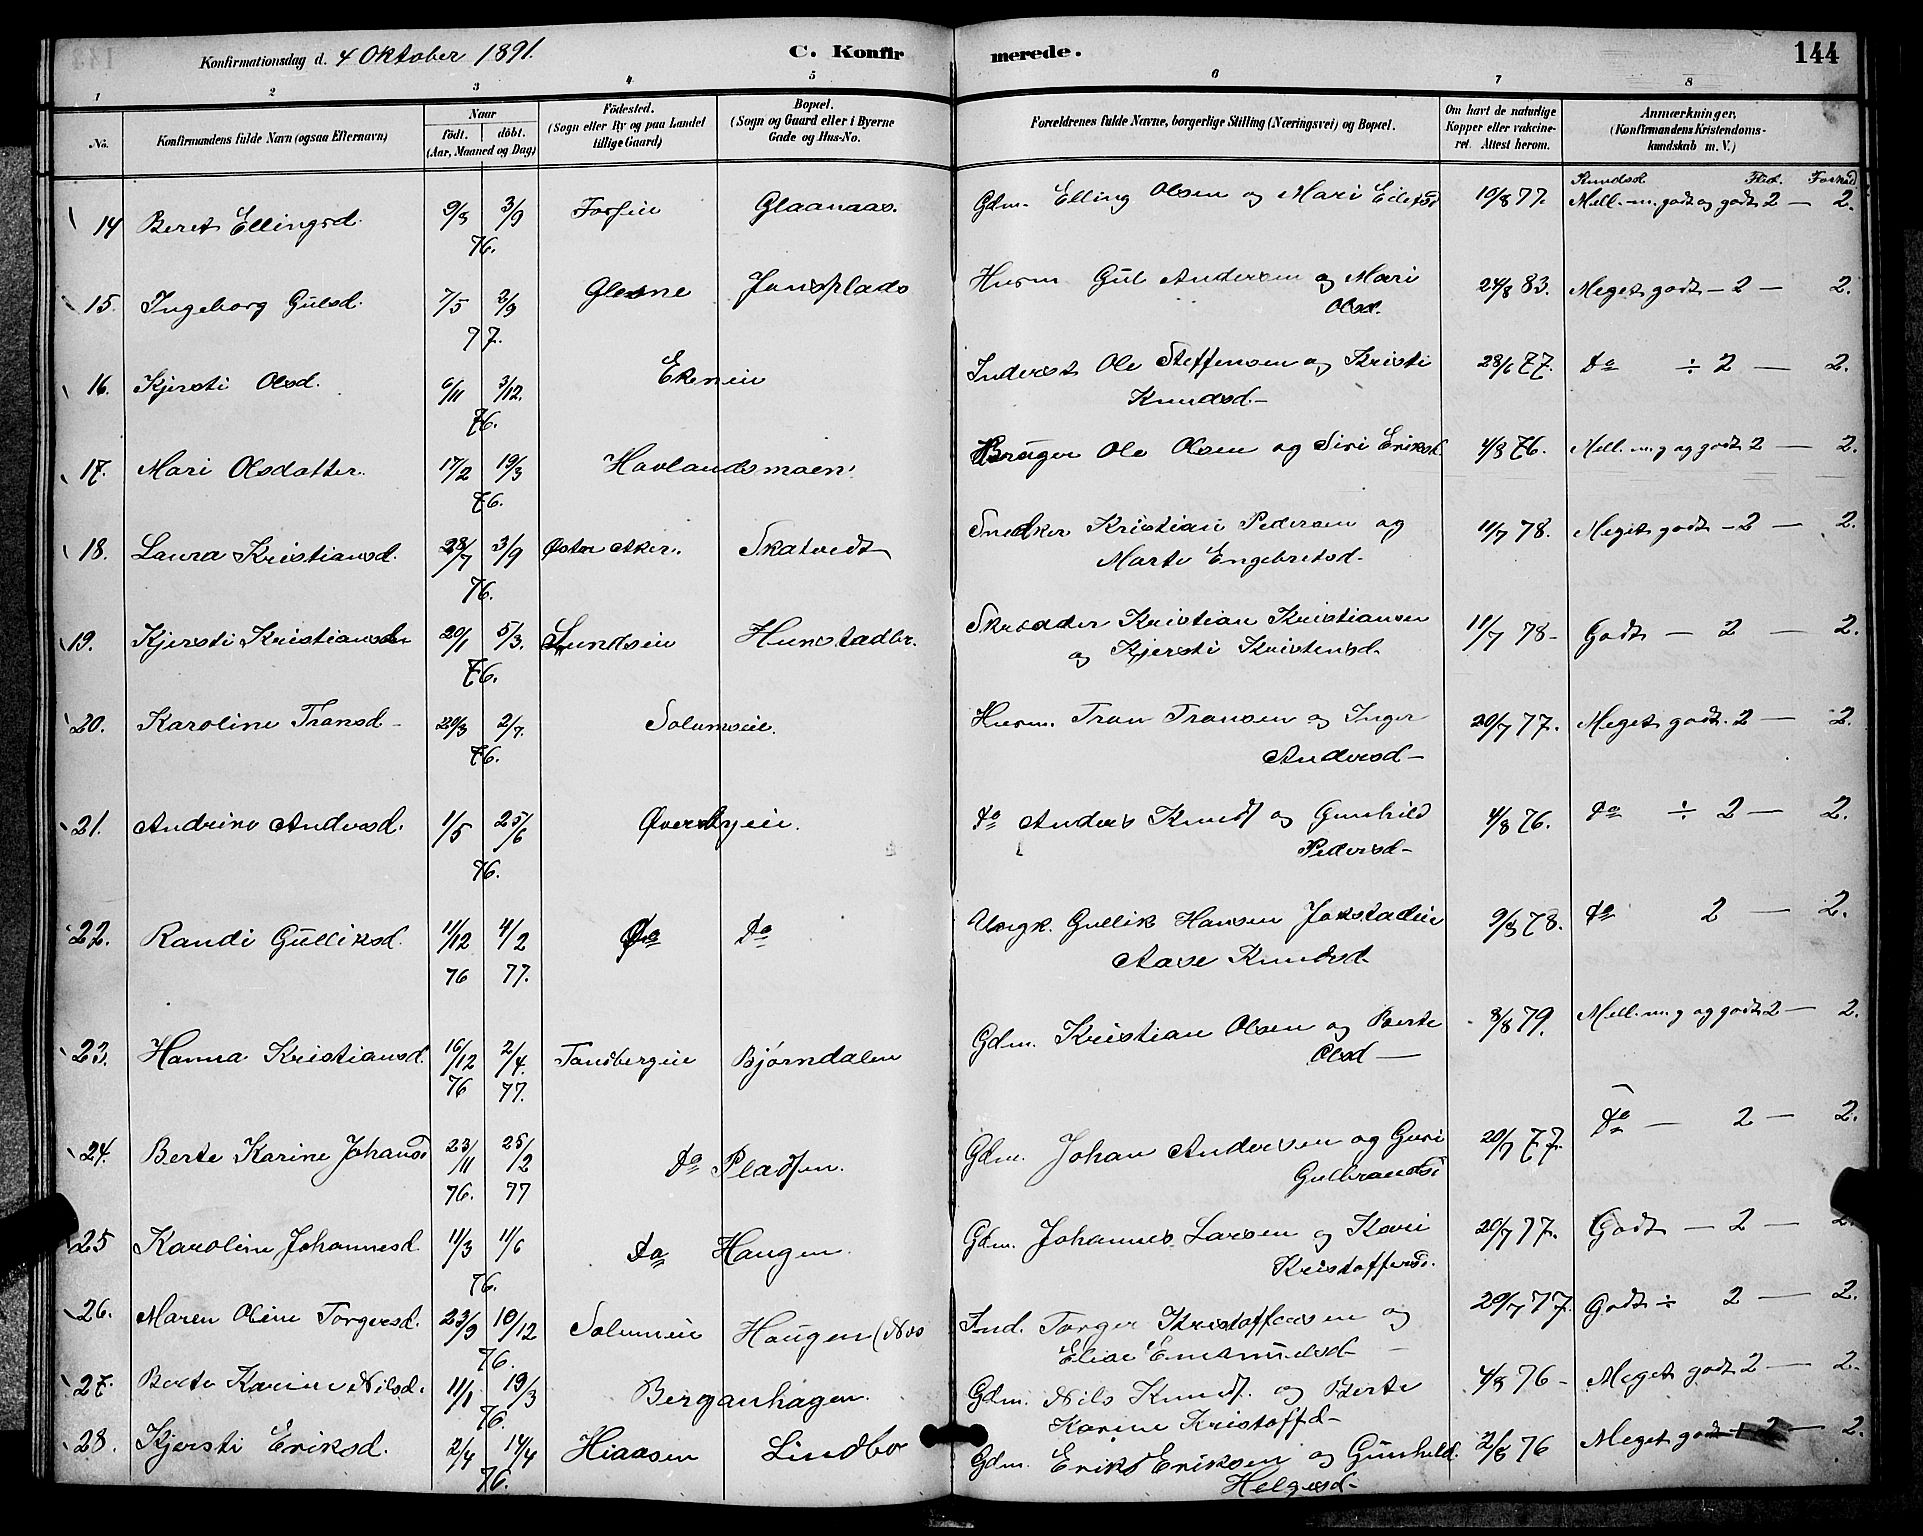 Konfirmationsdag d. 4 Oktober 1891. C. Konfirmerede. 144
1 2 3 4 5 6 7 8
No. Konfirmandens fulde Navn (ogsaa Efternavn) Naar födt. döbt. (Aar, Maaned og Dag) Födested. (Sogn eller By og paa Landet tillige Gaard) Bopæl. (Sogn og Gaard eller i Byerne Gade og Hus-No. Forældrenes fulde Navne, borgerlige Stilling (Næringsvei) og Bopæl. Om havt de naturlige Kopper eller vakcineret. Attest herom. Anmærkninger, (Konfirmandens Kristendomskundskab m. V.)
Kundsk Flid.
14 Beret Ellingsd. 9/3 3/9 76. Glaanaas. Gdm. Elling Olsen og Mari 10/8 77. Mell. m. godt og godt 2 — 2.
15. Ingeborg Gulsd. 7/5 2/9 77. Glesne Jonsplads Husm Gul Andersen og Mari Olsd. 24/8 83. Meget godt — 2 — 2.
16. Kjersti Olsd. 6/11 3/12. 76. Ekeneie Inderst Ole Steffensen og Kristi Knudsd — 28/6 77. do ÷ 2 — 2.
17. Mari Olsdatter. 17/2 19/3 76. Hovlandsmoen. Bruger Ole Olsen og Siri Eriksd 4/8 76. Mell. m. g og godt 2 — 2.
18. Laura Kristiansd. 28/7 3/9 76. Østre Aker. Skatvedt Snedker Kristian Pedersen og Marte Engebretsd — 11/7 78. Meget godt — 2 — 2.
19. Kjersti Kristiansd 20/1 5/3. 76. Lundseie Hunstadbr. Skrædder Kristian Kristiansen og Kjersti Kristensd — 11/7 78 — Godt — 2 — 2.
20. Karoline Transd — 20/3 2/7. 76. Solumseie. Husm. Tran Transen og Inger Andersd — 20/7 77. Meget godt. 2 — 2.
21. Andrine Andersd. 1/5 25/6 76. Øverbyeie. do Anders Knuds. og Gunhild Pedersd — 4/8 76. do ÷ 2 — 2.
22. Randi Gulliksd. 11/12 76 4/2 77. do do Ungk. Gullik Hansen Jokstadeie Aase Knudsd — 9/8 78. do 2 — 2.
23. Hanna Kristiansd. 16/12 76 2/4. 77. Tandbergeie Bjørndalen Gdm. Kristian Olsen og Berte Olsd — 8/8 79. Mell. m. g og godt 2 — 2.
24. Berte Karine Johansd 23/11 76. 25/2 77 do Pladsen. Gdm. Johan Andersen og Guri Gulbrandsd 20/7 77. do — 2 — 2.
25 Karoline Johannesd. 11/3 11/6 76. do Haugen. Gdm. Johannes Larsen og Kari Kristoffersd. 20/7 77. Godt — 2 — 2.
26. Maren Oline Torgersd. 23/9 10/12 76. Solumeie Haugen Ind. Torger Kristoffersen og Eliae Emanuelsd — 20/7 77. Godt ÷ 2 — 2.
27. Berte Karine Nilsd. 11/1 19/3 76. Berganhagen. Gdm. Nils Knuds. og Berte Karine Kristoffd — 4/8 76 — Meget godt 2 — 2.
28. Kjersti Eriksd. 2/4 14/4 76. Hiaasen Lindbo Gdm. Erik Eriksen og Gunhild Helgesd — 2/8 76 Meget godt — 2 — 2.